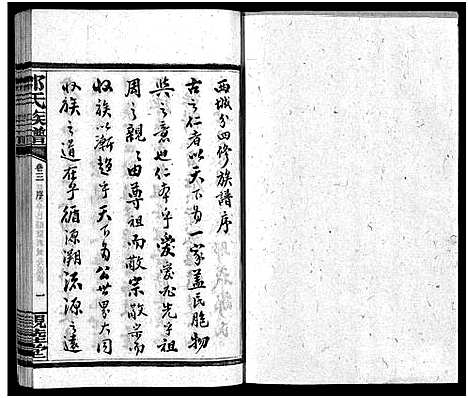 西城分四修族譜序
古之仁者以天下為一家蓋民胞物
與之意也仁本乎愛愛必先乎祖
周之親之由尊祖而敬宗敬宗而
收族以漸趨乎天下為公世界大同
收族之道在乎循源溯流源之遠
氏族譜
卷三
一
親睦堂